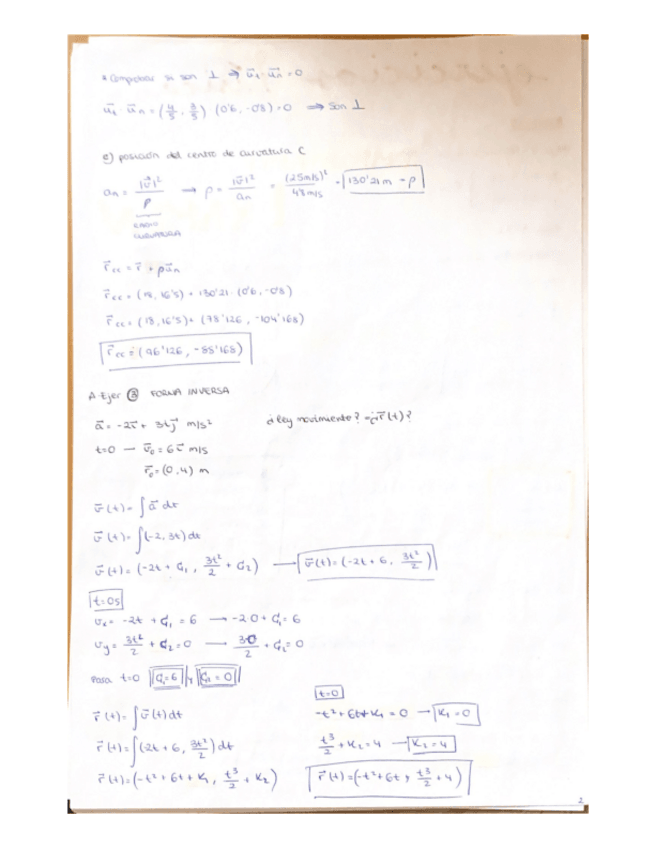 * Comprobar si son ⊥ ⇒ u⃗t · u⃗n = 0
u⃗t · u⃗n = (4/5, 3/5) (0'6, -0'8) = 0 ⇒ Son ⊥
e) posición del centro de curvatura C
an = |v⃗|²/ρ → ρ = |v⃗|²/an = (25m/s)²/4'8 m/s = 130'21 m = ρ
RADIO
CURVATURA
r⃗cc = r⃗ + ρu⃗n
r⃗cc = (18, 16'5) + 130'21 · (0'6, -0'8)
r⃗cc = (18, 16'5) + (78'126, -104'168)
r⃗cc = (96'126, -85'168)
A. Ejer ③ FORMA INVERSA
a⃗ = -2i⃗ + 3tj⃗ m/s² ¿ley movimiento? = ¿r⃗(t)?
t=0 → v⃗o = 6i⃗ m/s
r⃗o = (0,4) m
v⃗(t) = ∫ a⃗ dt
v⃗(t) = ∫(-2, 3t) dt
v⃗(t) = (-2t + C1, 3t²/2 + C2) → v⃗(t) = (-2t + 6, 3t²/2)
t=0s
vx = -2t + C1 = 6 → -2·0 + C1 = 6
vy = 3t²/2 + C2 = 0 → 3·0/2 + C2 = 0
Para t=0 C1 = 6 y C2 = 0
r⃗(t) = ∫ v⃗(t) dt
r⃗(t) = ∫(-2t + 6, 3t²/2) dt
r⃗(t) = (-t² + 6t + K1, t³/2 + K2)
t=0
-t² + 6t + K1 = 0 → K1 = 0
t³/2 + K2 = 4 → K2 = 4
r⃗(t) = (-t² + 6t, t³/2 + 4)
2